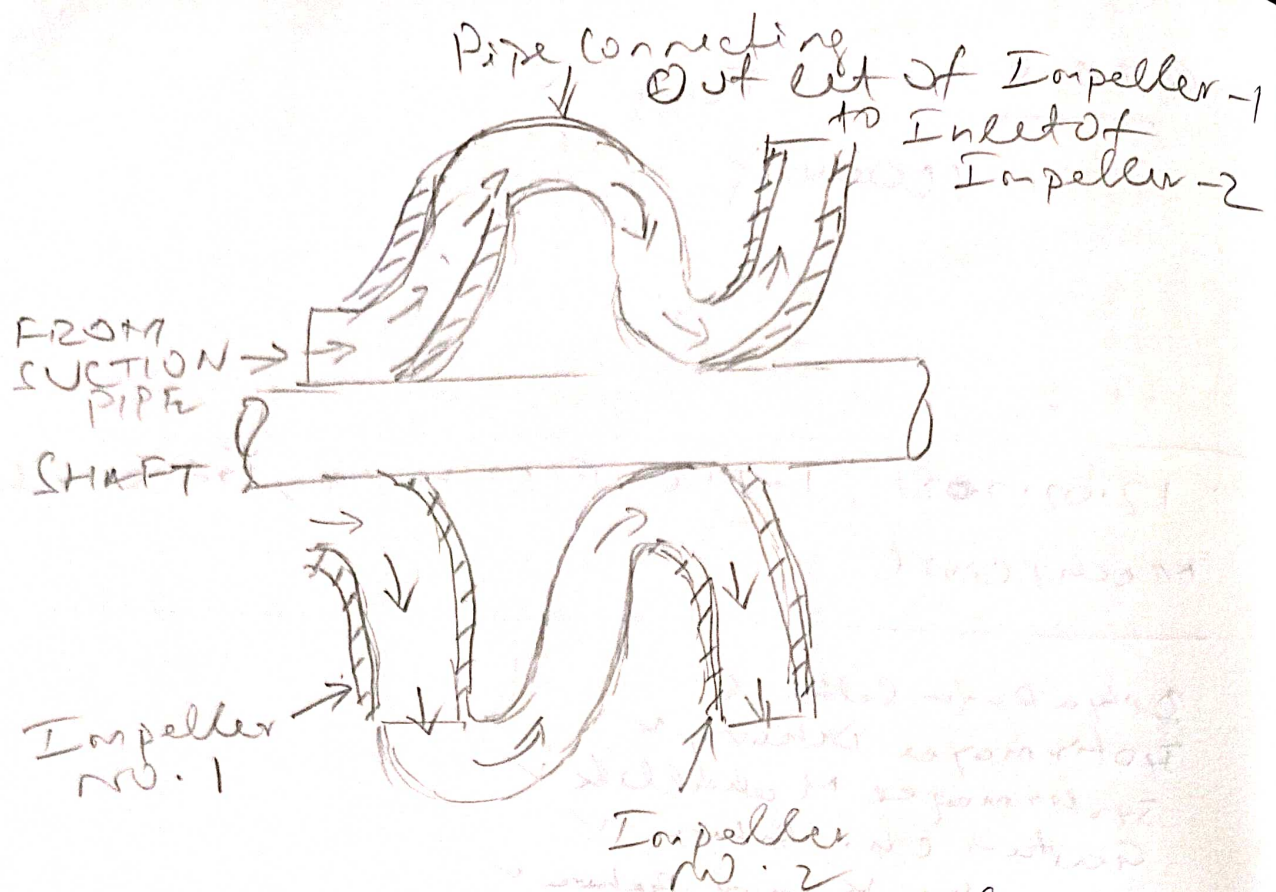 Pipe Connecting
Out let of Impeller-1
to Inlet Of
Impeller-2
FROM
SUCTION
PIPE
SHAFT
Impeller
NO. 1
Impeller
NO. 2